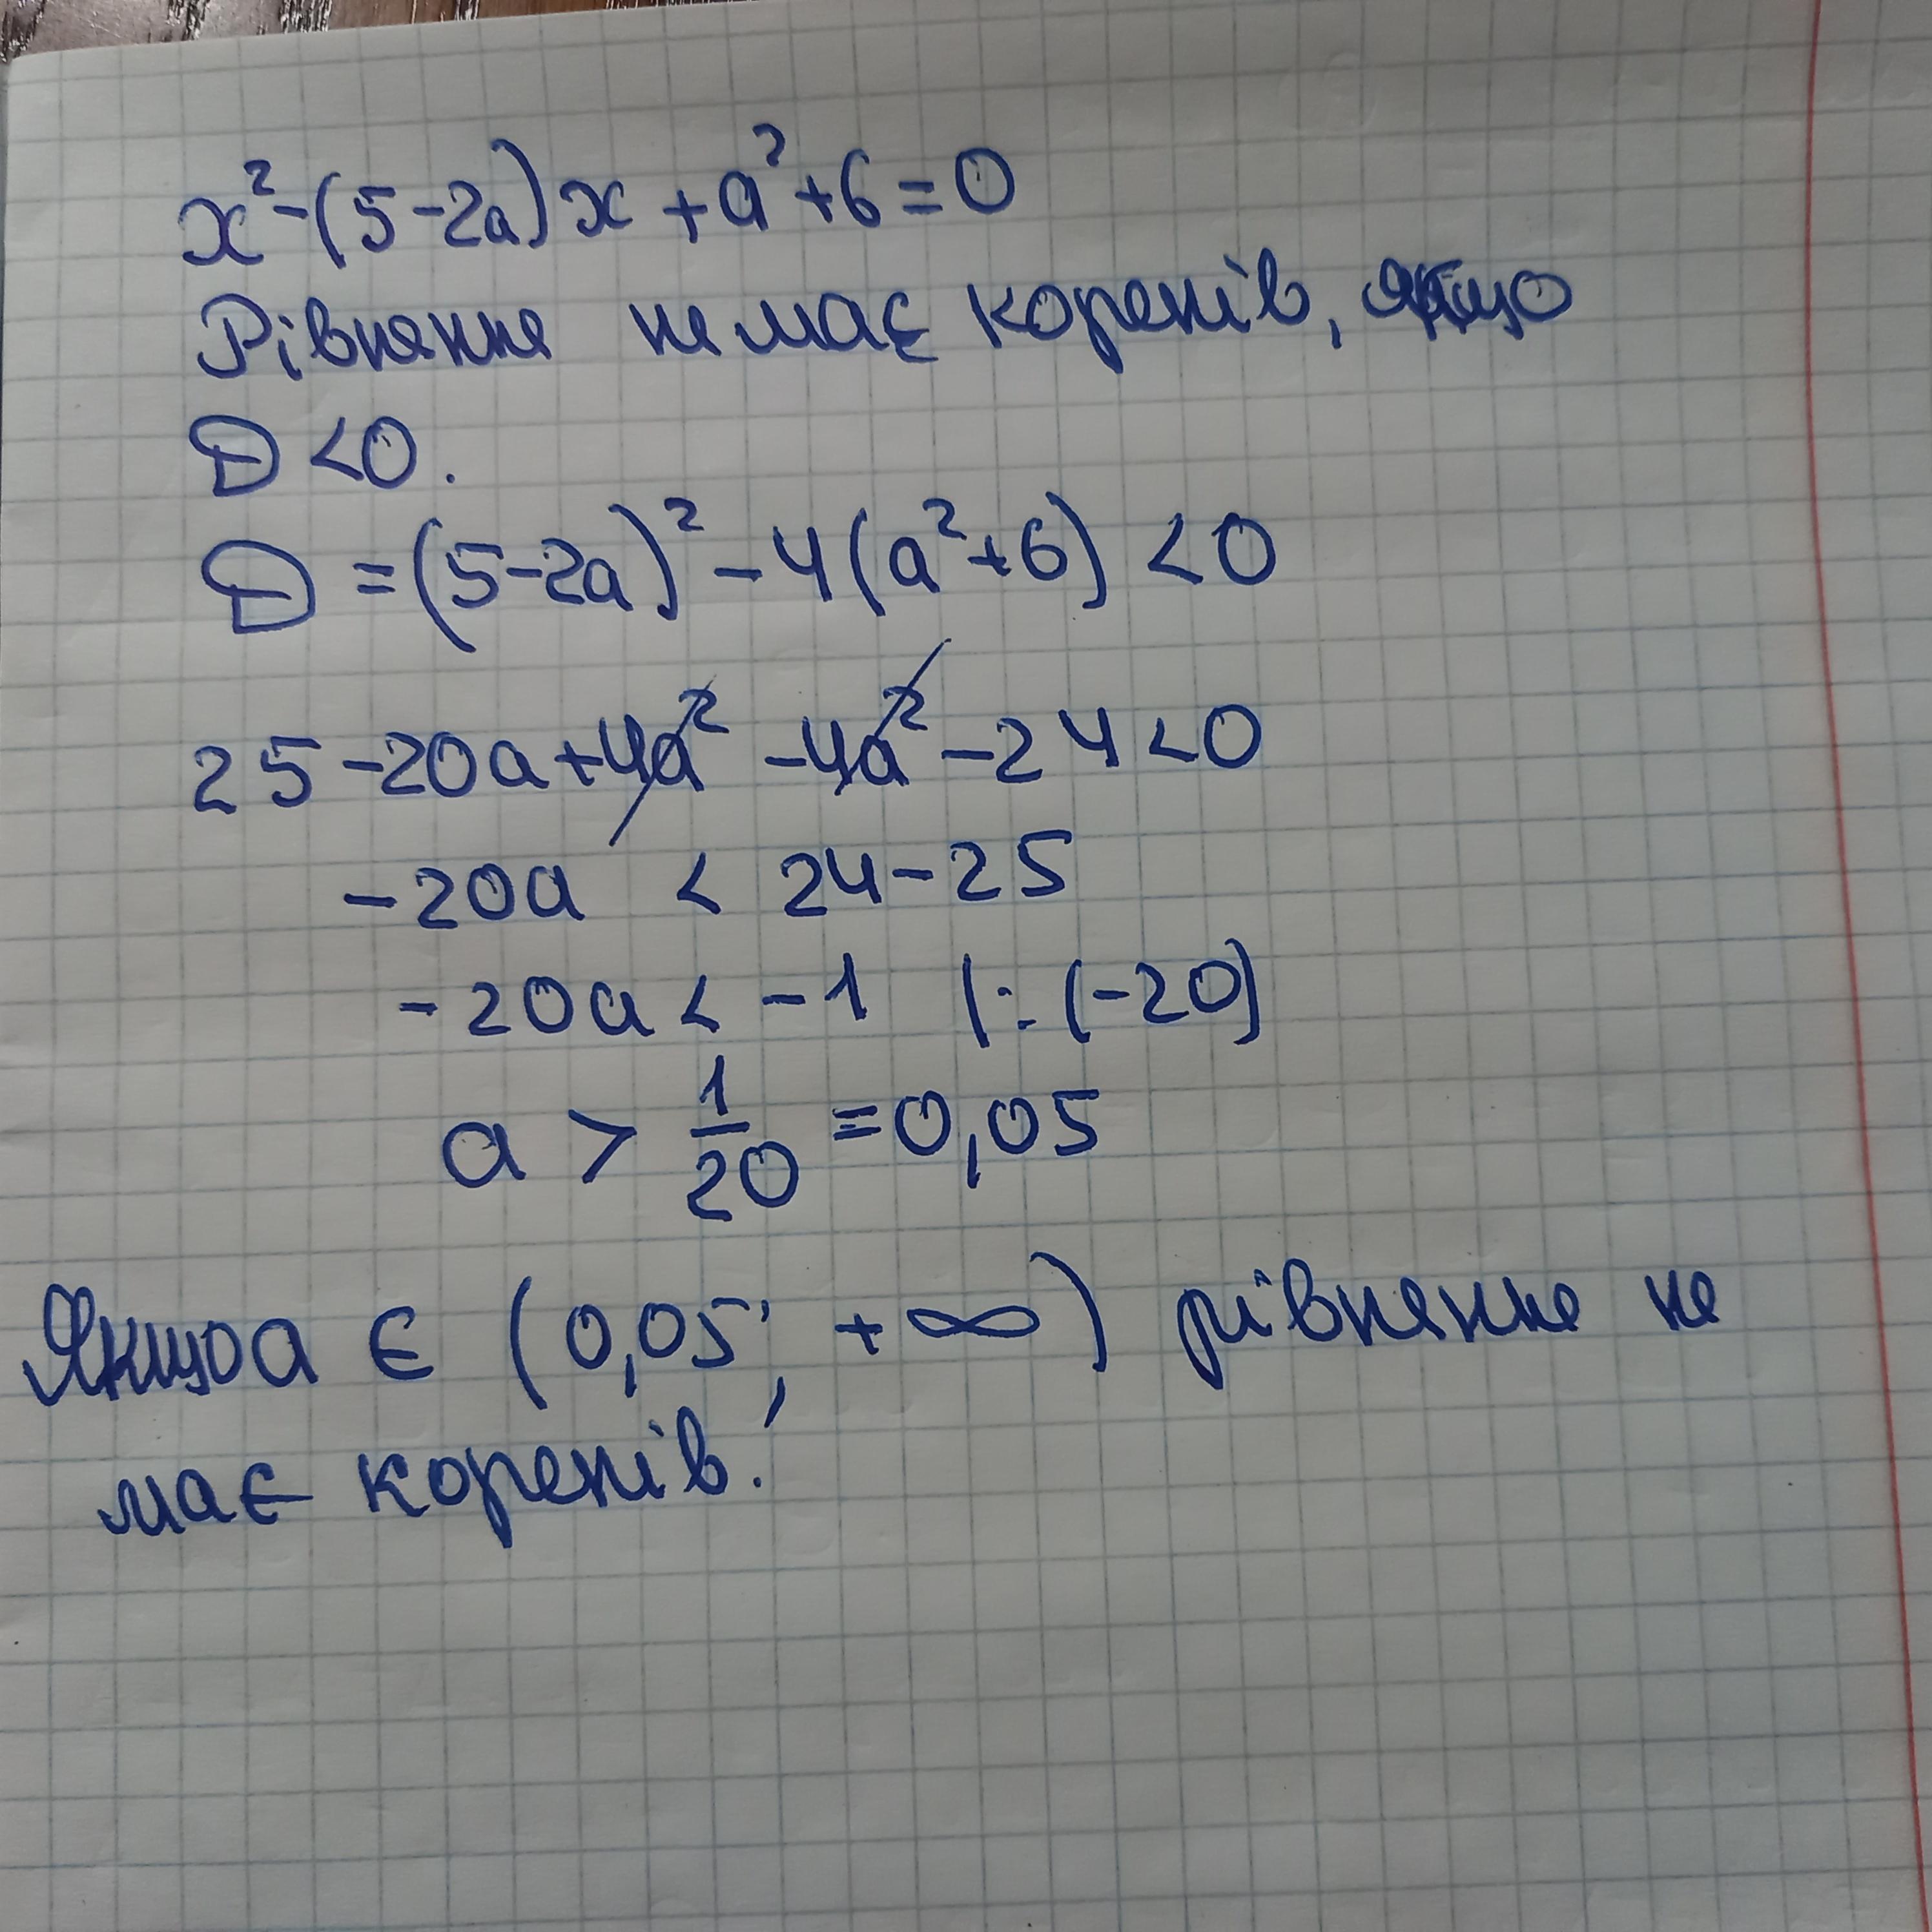 x²-(5-2a)x+a²+6=0
Рівняння не має коренів, якщо
D<0.
D=(5-2a)²-4(a²+6)<0
25-20a+4a²-4a²-24<0
-20a < 24-25
-20a < -1 |:(-20)
a > 1/20 =0,05
Якщо a ∈ (0,05; +∞) рівняння не
має коренів!